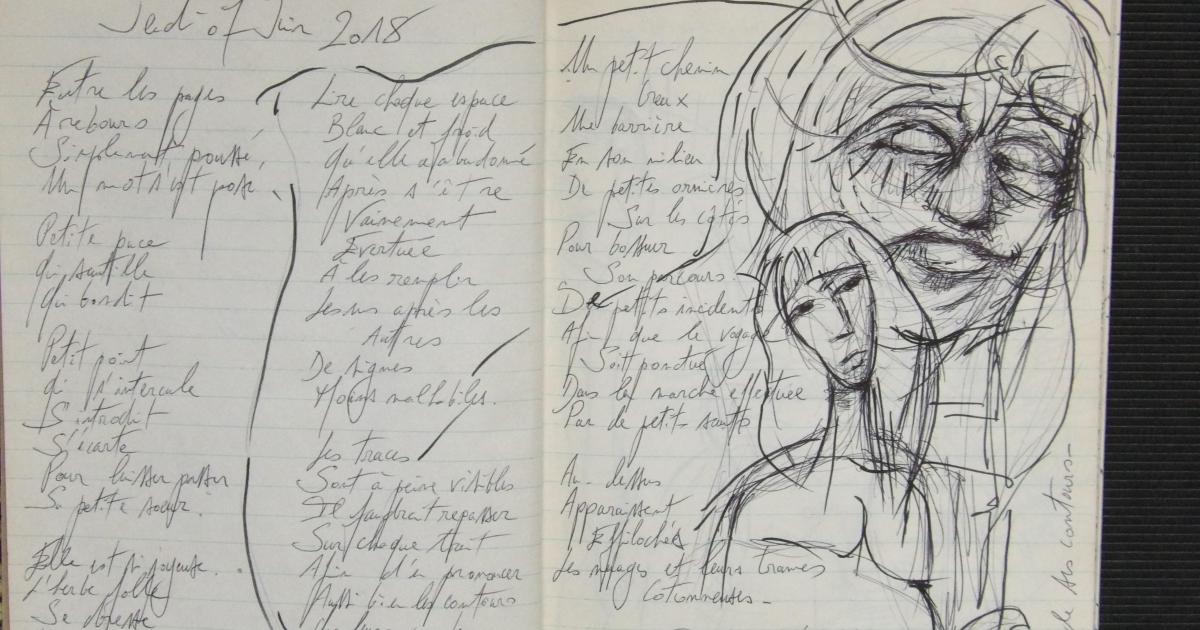 Jeudi 07 Juin 2018
Entre les pages
À rebours
Simplement, pousse,
Un mot s'est posé
Petite puce
Qui sautille
Qui bondit
Petit point
Qui s'intercale
S'introduit
S'écarte
Pour laisser passer
Sa petite soeur.
Elle est si joyeuse.
L'herbe folle
Se dresse
Lire chaque espace
Blanc et froid
Qu'elle a abandonné
Après s'être
Vainement
Evertuée
A les remplir
Les uns après les
Autres
De signes
Moins malléables.
Les traces
Sont à peine visibles
Il faudrait repasser
Sur chaque trait
Afin d'en prononcer
Aussi bien les contours
Un petit chemin
Creux
Une barrière
En son milieu
De petites ornières
Sur les côtés
Pour bossuer
Son parcours
De petits incidents
Afin que le voyage
Soit ponctué
Dans la marche effectuée
Par de petits sauts
Au-dessus
Apparaissent
Effilochés
Les nuages et leurs trames
Cotonneuses-
de ses contours-